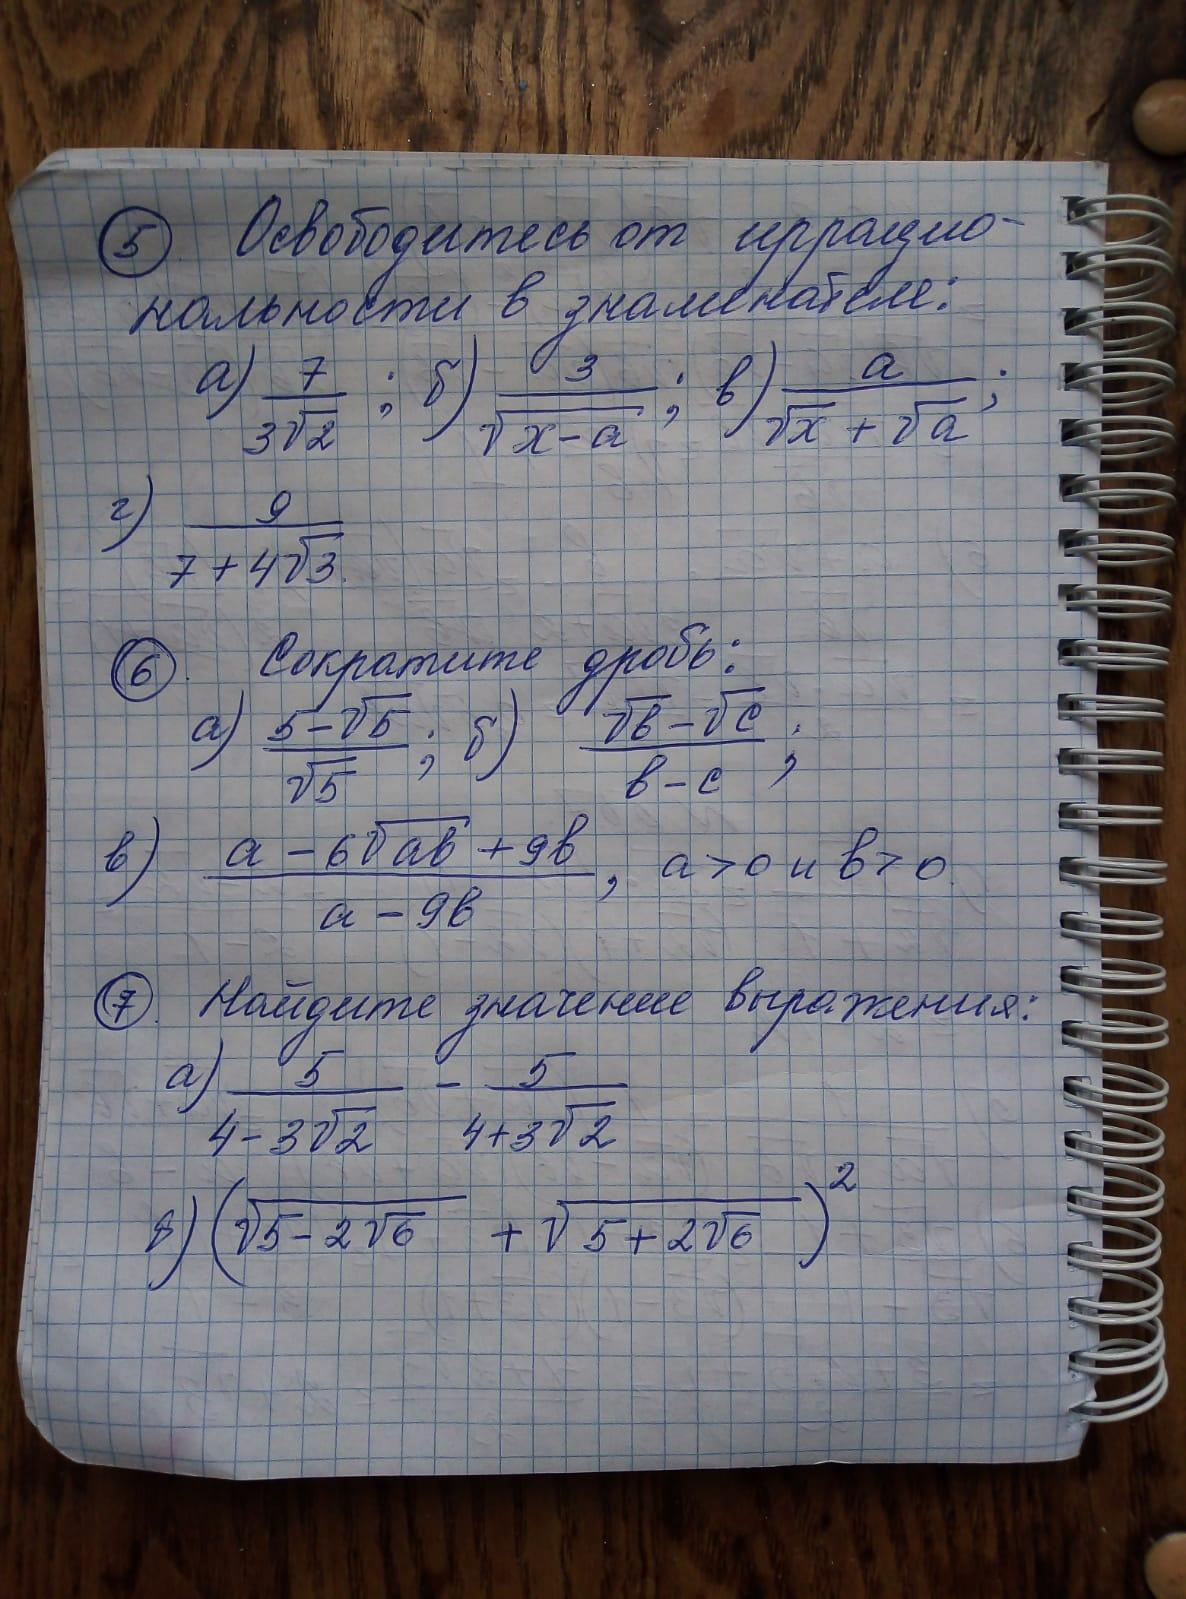 5. Освободитесь от иррацио-
нальности в знаменателе:
а) 7/(3√2); б) 3/√(x-a); в) a/(√x + √a);
г) 9/(7+4√3).
6. Сократите дробь:
а) (5-√5)/√5; б) (√b-√c)/(b-c);
в) (a-6√ab+9b)/(a-9b), a>0 и b>0.
7. Найдите значение выражения:
а) 5/(4-3√2) - 5/(4+3√2)
в) (√(5-2√6) + √(5+2√6))²